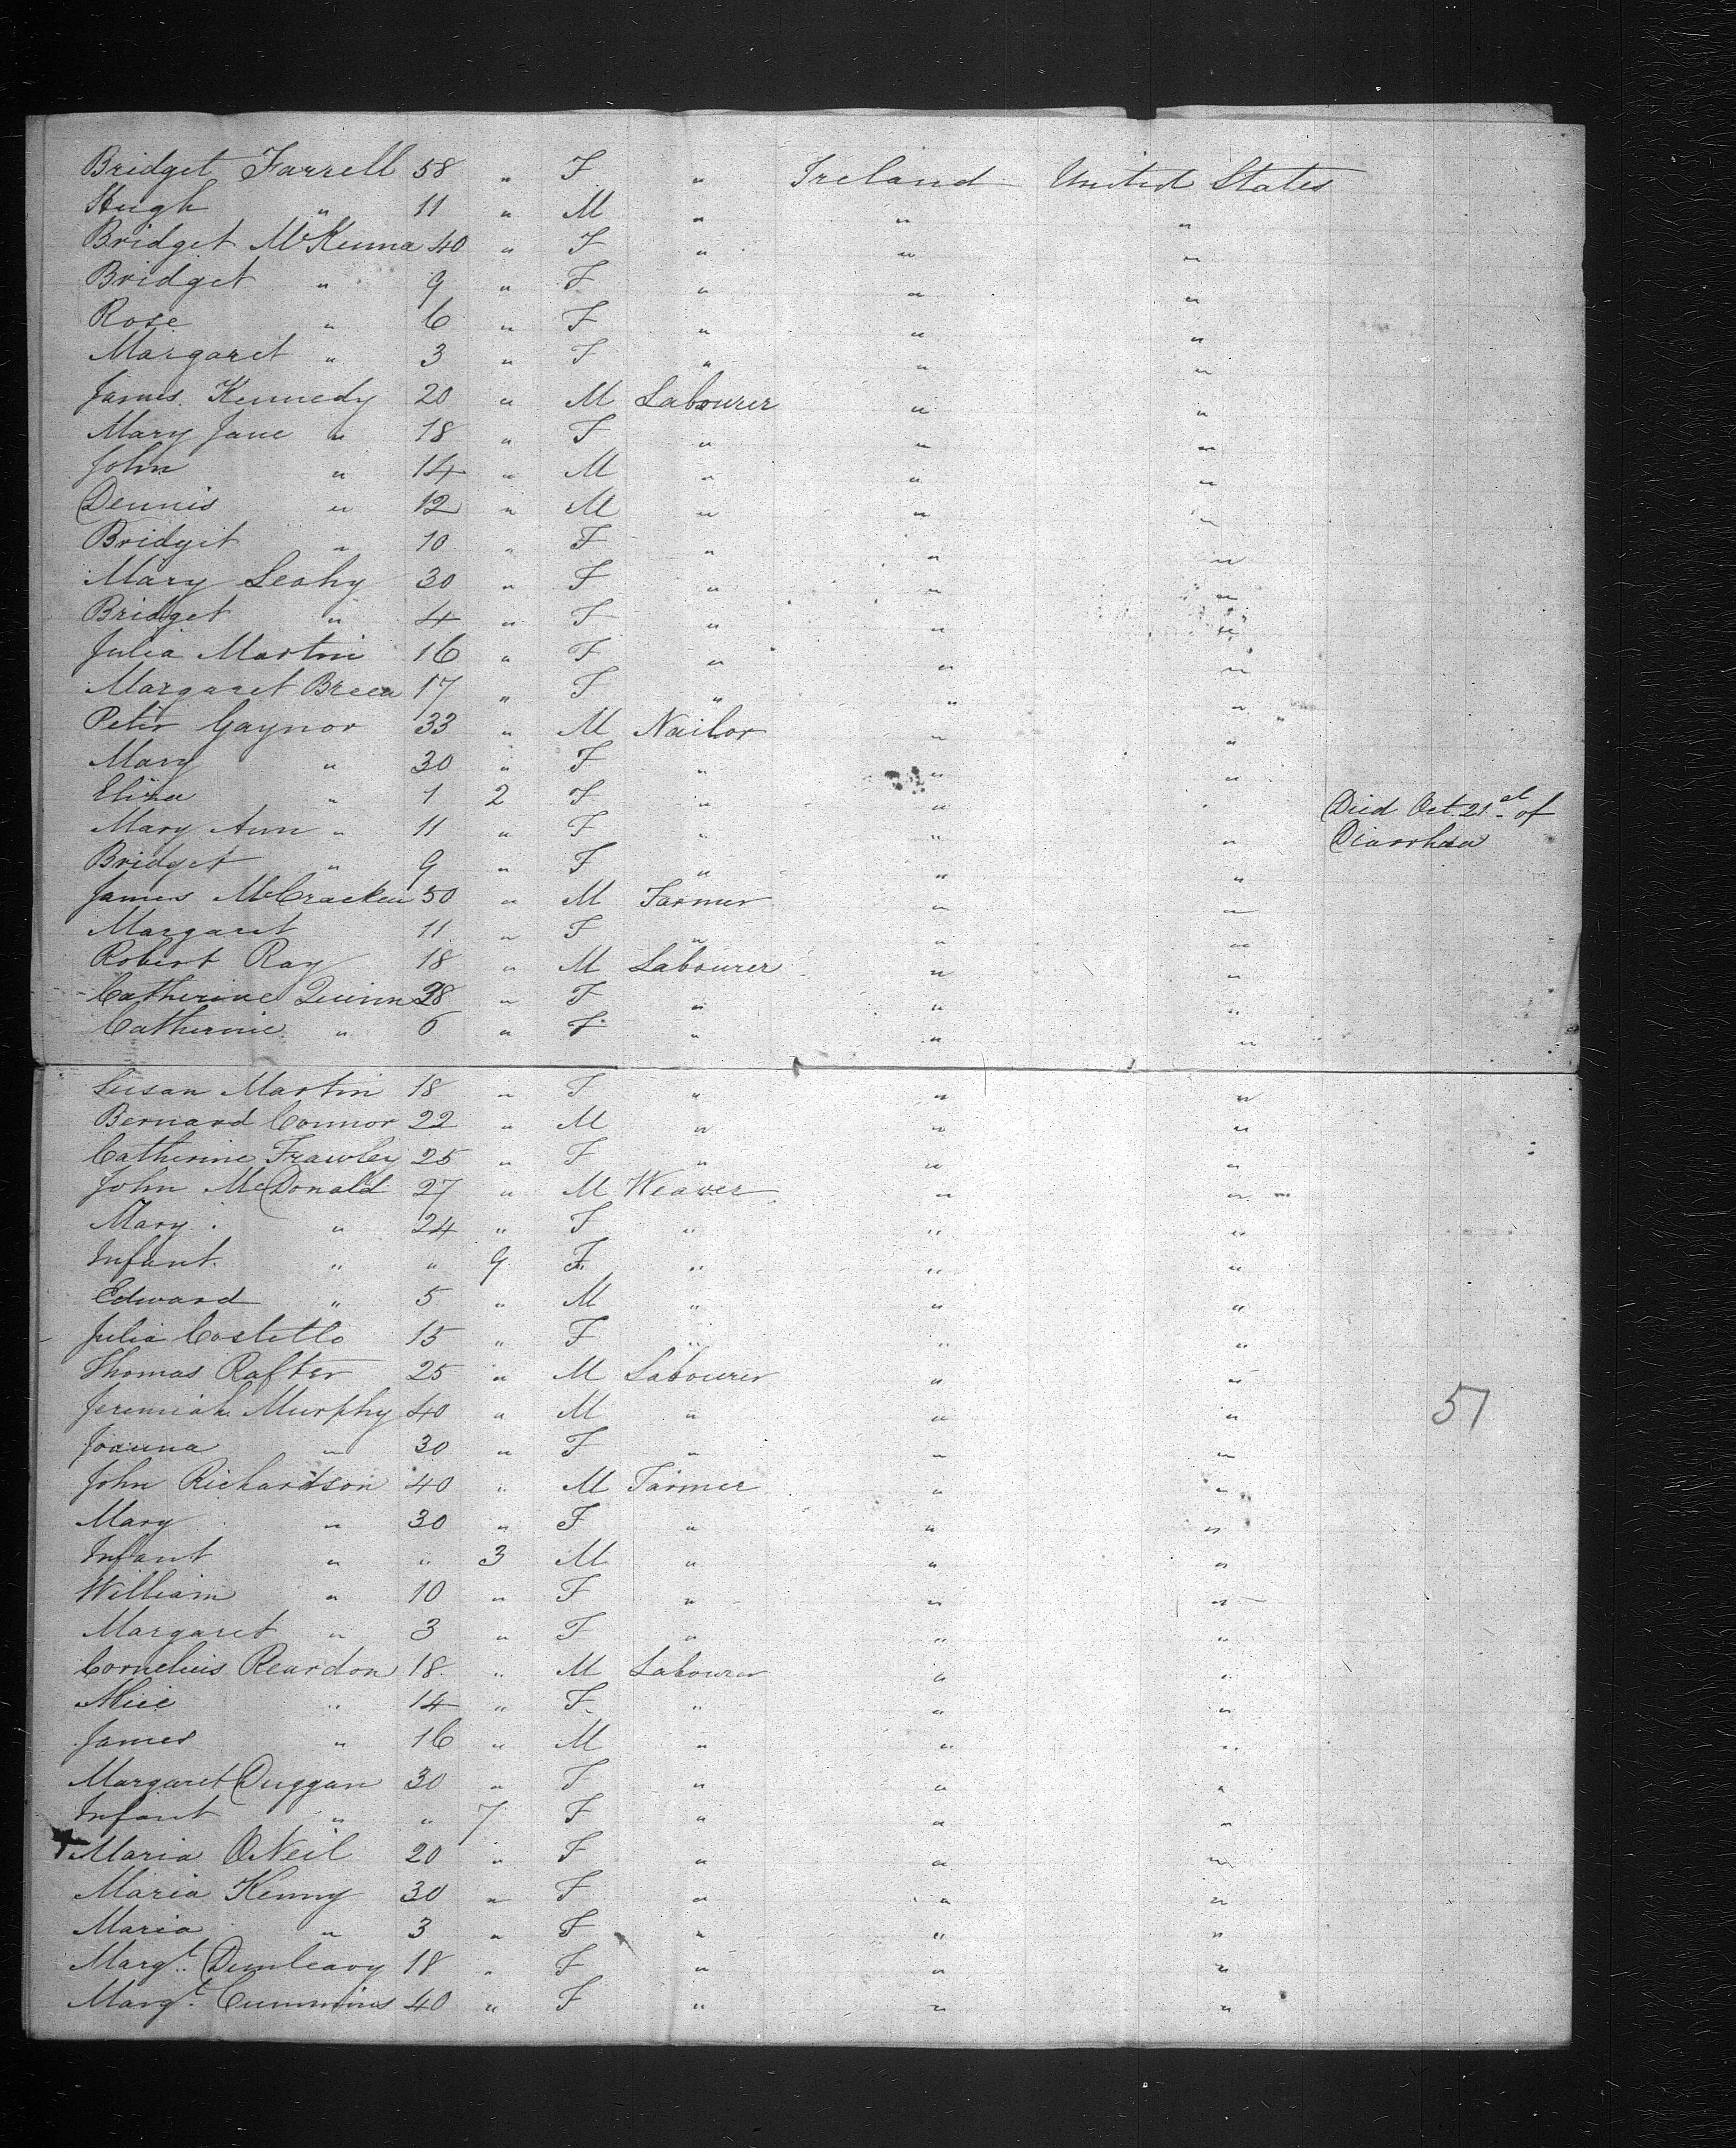 Bridget Farrell 58 " F " Ireland United States
Hugh " 11 " M " " "
Bridget McKenna 40 " F " " "
Bridget " 9 " F " " "
Rose " 6 " F " " "
Margaret " 3 " F " " "
James Kennedy 20 " M Labourer " "
Mary Jane " 18 " F " " "
John " 14 " M " " "
Dennis " 12 " M " " "
Bridget " 10 " F " " "
Mary Leahy 30 " F " " "
Bridget " 4 " F " " "
Julia Martin 16 " F " " "
Margaret Breen 17 " F " " "
Peter Gaynor 33 " M Nailor " "
Mary " 30 " F " " "
Eliza " 1 2 F " " " Died Oct. 21st of
Mary Ann " 11 " F " " " Diarrhœa
Bridget " 9 " F " " "
James McCracken 50 " M Farmer " "
Margaret 11 " F " " "
Robert Ray 18 " M Labourer " "
Catherine Quinn 38 " F " " "
Catherine " 6 " F " " "
Susan Martin 18 " F " " "
Bernard Connor 22 " M " " "
Catherine Frawley 25 " F " " "
John McDonald 27 " M Weaver " "
Mary " 24 " F " " "
Infant " " 9 F " " "
Edward " 5 " M " " "
Julia Costello 15 " F " " "
Thomas Rafter 25 " M Labourer " "
Jeremiah Murphy 40 " M " " " 57
Joanna " 30 " F " " "
John Richardson 40 " M Farmer " "
Mary " 30 " F " " "
Infant " " 3 M " " "
William " 10 " F " " "
Margaret " 3 " F " " "
Cornelius Reardon 18 " M Labourer " "
Alice " 14 " F " " "
James " 16 " M " " "
Margaret Duggan 30 " F " " "
Infant " " 7 F " " "
Maria ONeil 20 " F " " "
Maria Kenny 30 " F " " "
Maria " 3 " F " " "
Margt. Dunleavy 18 " F " " "
Margt. Cummins 40 " F " " "